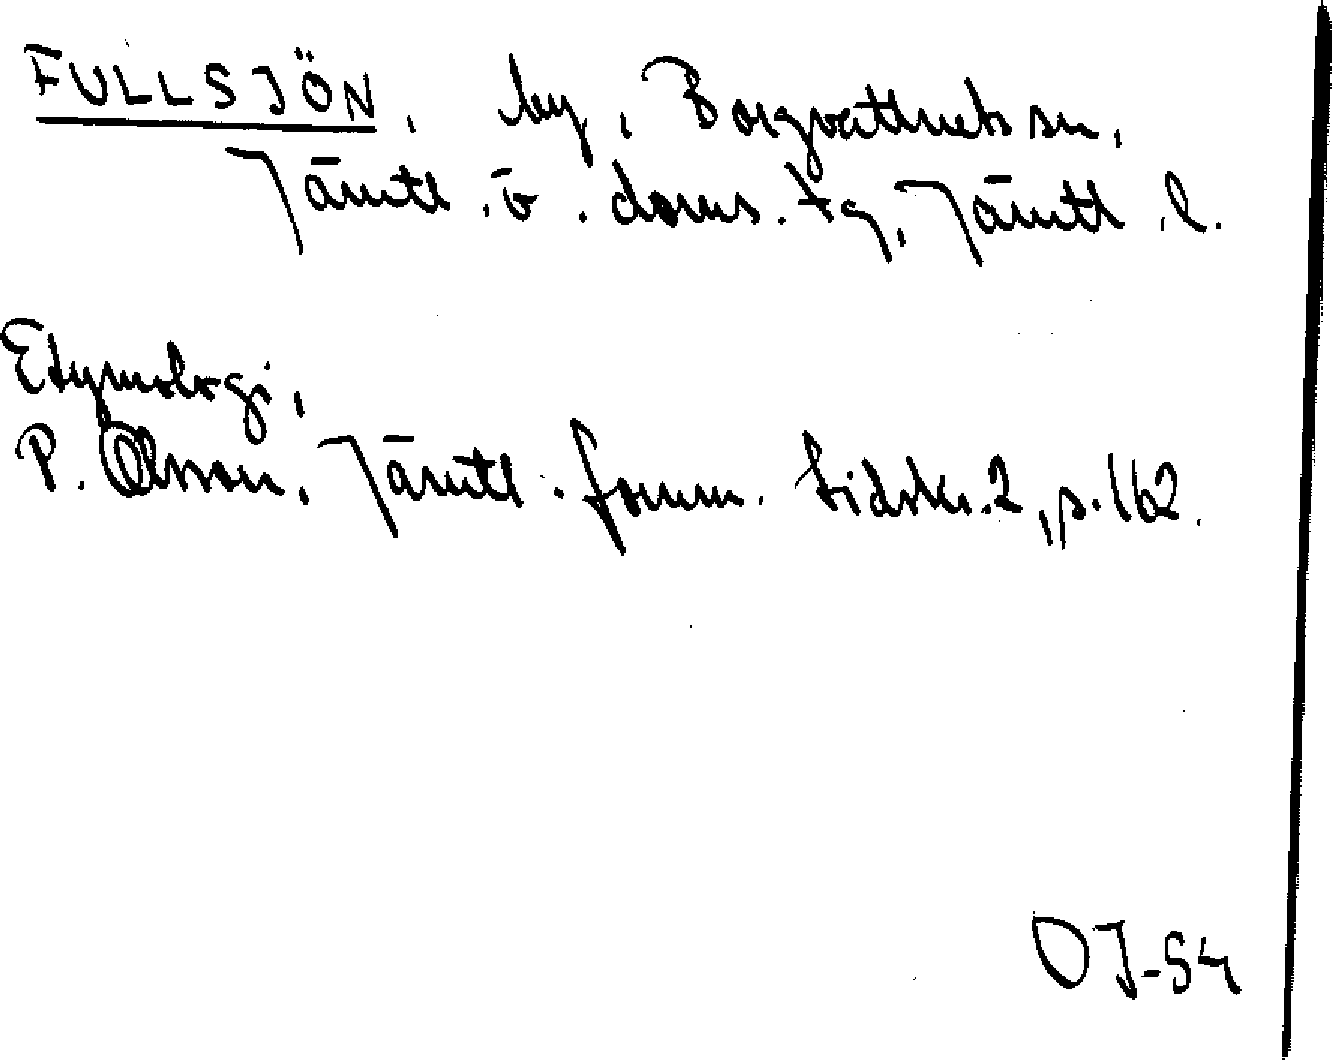 FULLSJÖN, by, Borgvattnets sn,
Jämtl. ö. doms. tg, Jämtl. l.
Etymologi,
P. Olsson, Jämtl. fornm. tidskr. 2, s. 162.
OJ-54